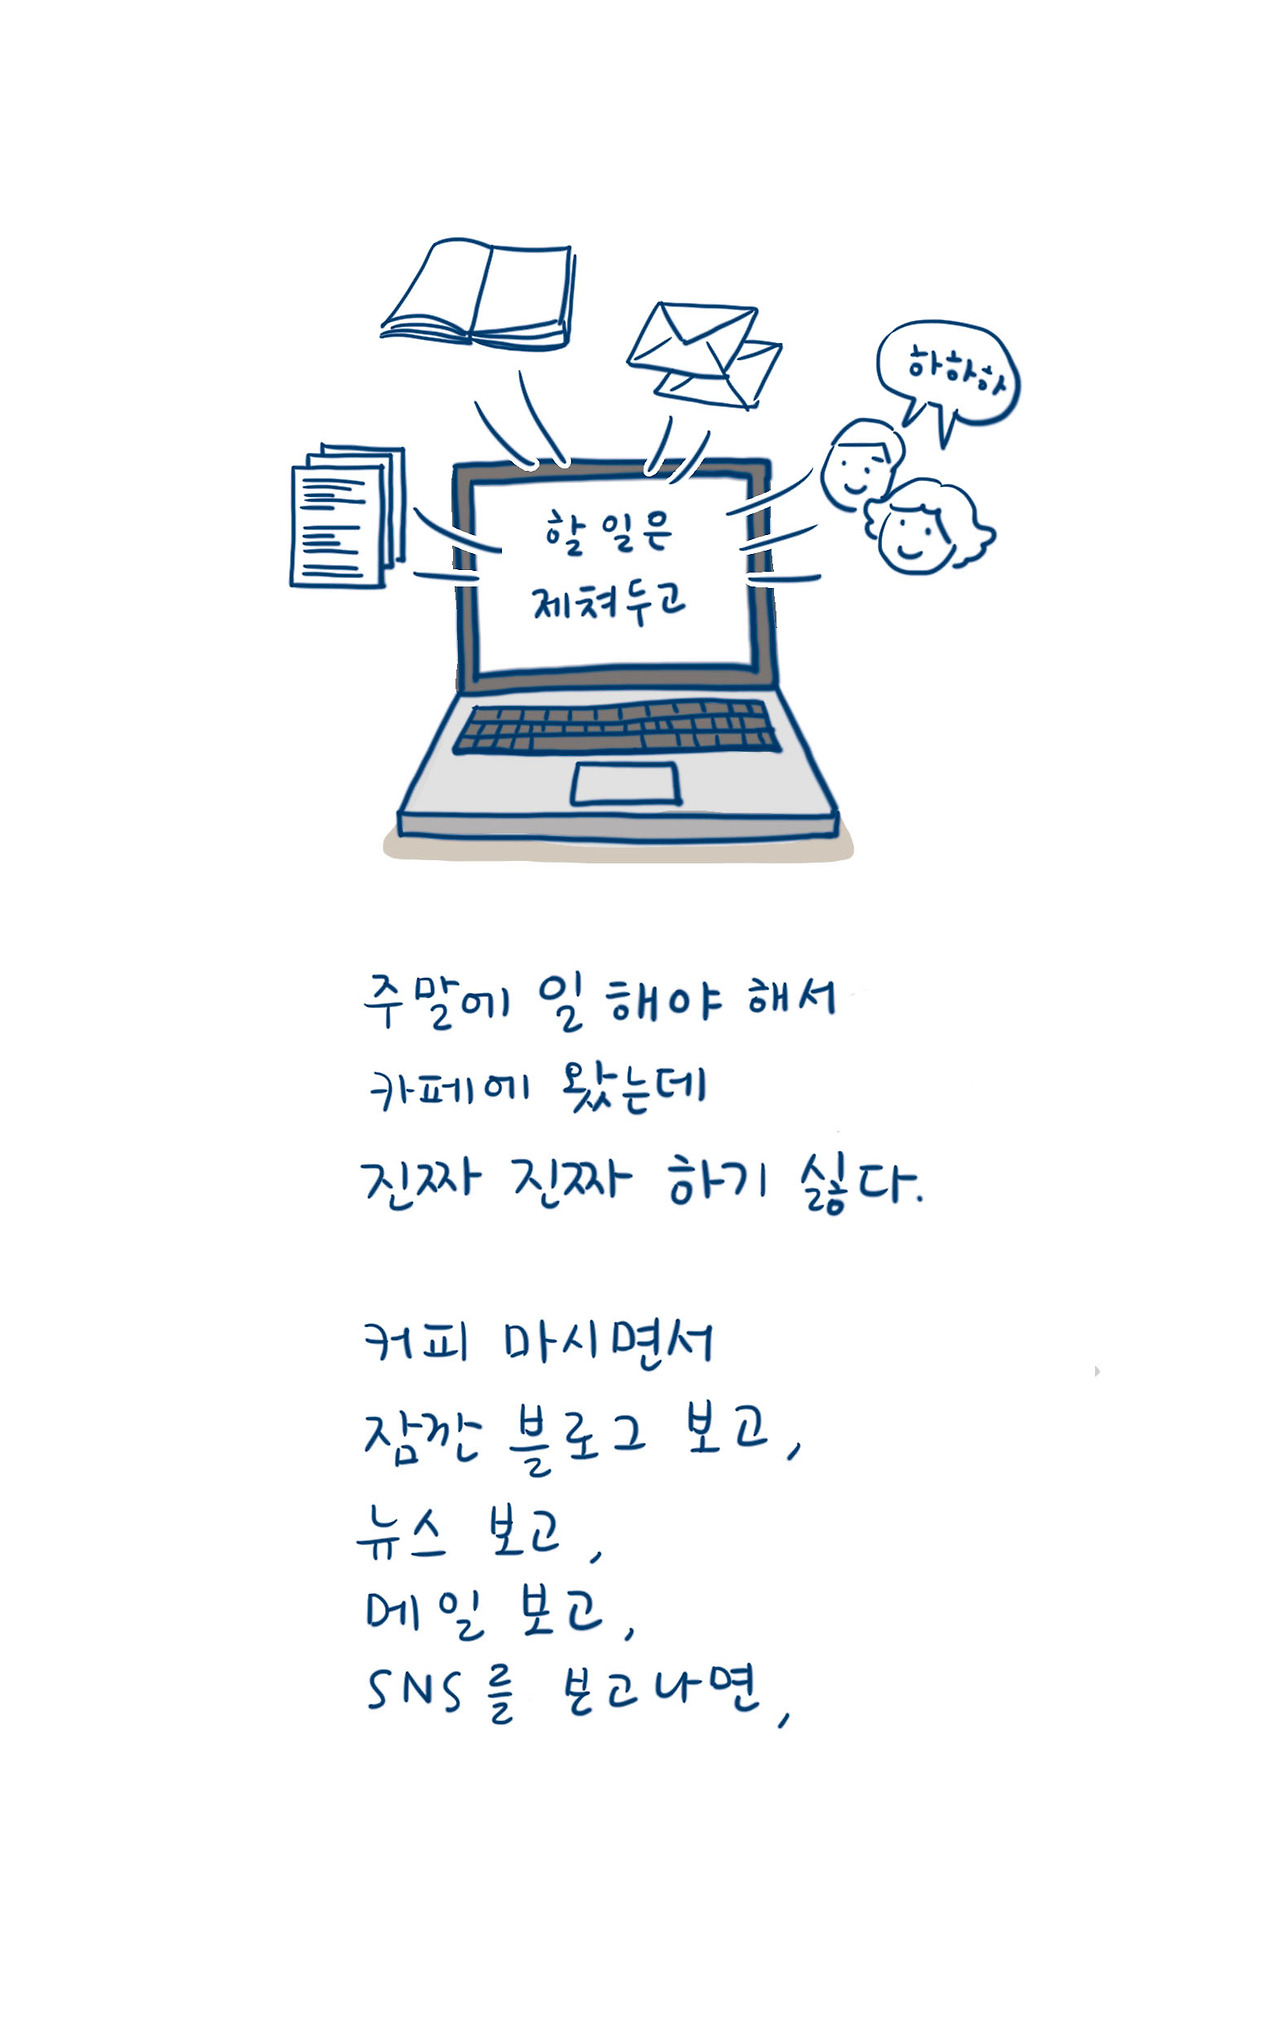 하하하
할 일은
제쳐두고
주말에 일 해야 해서
카페에 왔는데
진짜 진짜 하기 싫다.
커피 마시면서
잠깐 블로그 보고,
뉴스 보고,
메일 보고,
SNS를 보고나면,